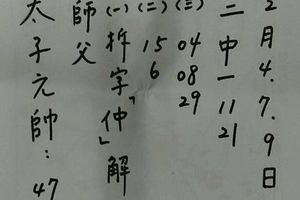 2月4.7.9日
二中一 11 21
(三) 04 08 29
(二) 15 6
(一) 拆字「仲」解
師父
太子元帥：47